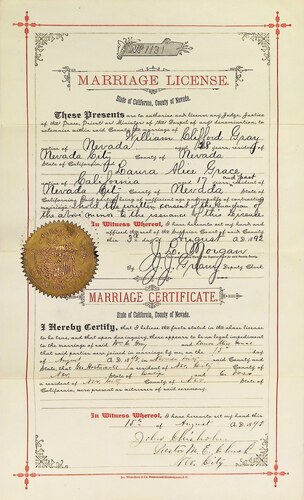 No 1131
MARRIAGE LICENSE.
State of California, County of Nevada.
These Presents are to authorize and license any Judge, Justice
of the Peace, Priest or Minister of the Gospel of any denomination, to
solemnize within said County the marriage of
William Clifford Gray
native of Nevada aged 28 years, resident of
Nevada City County of Nevada
State of California and Laura Alice Grace
native of California aged 17 and past resident of
Nevada City County of Nevada State of
California, said parties being of sufficient age and capable of contracting
marriage. I hold the written consent of the Guardian of
the above minor to the issuance of this License
In Witness Whereof, I have hereunto set my hand and
affixed the Seal of the Superior Court of said County
this 3d day of August A.D. 1892
J. L. Morgan
By Deputy Clerk.
MARRIAGE CERTIFICATE.
State of California, County of Nevada.
I Hereby Certify, that I believe the facts stated in the above license
to be true, and that upon due inquiry there appears to be no legal impediment
to the marriage of said Wm C. Gray and Laura Alice Grace
that said parties were joined in marriage by me, on the 15 day
of August A.D. in said County and
State, that a resident of Nev City County of
Nev. State of and
a resident of Nev City County of Nev. State of
California, were present as witnesses of said ceremony.
In Witness Whereof, I have hereunto set my hand this
15th day of August A.D.
John Chisholm
Rector M. E. Church
Nev. City